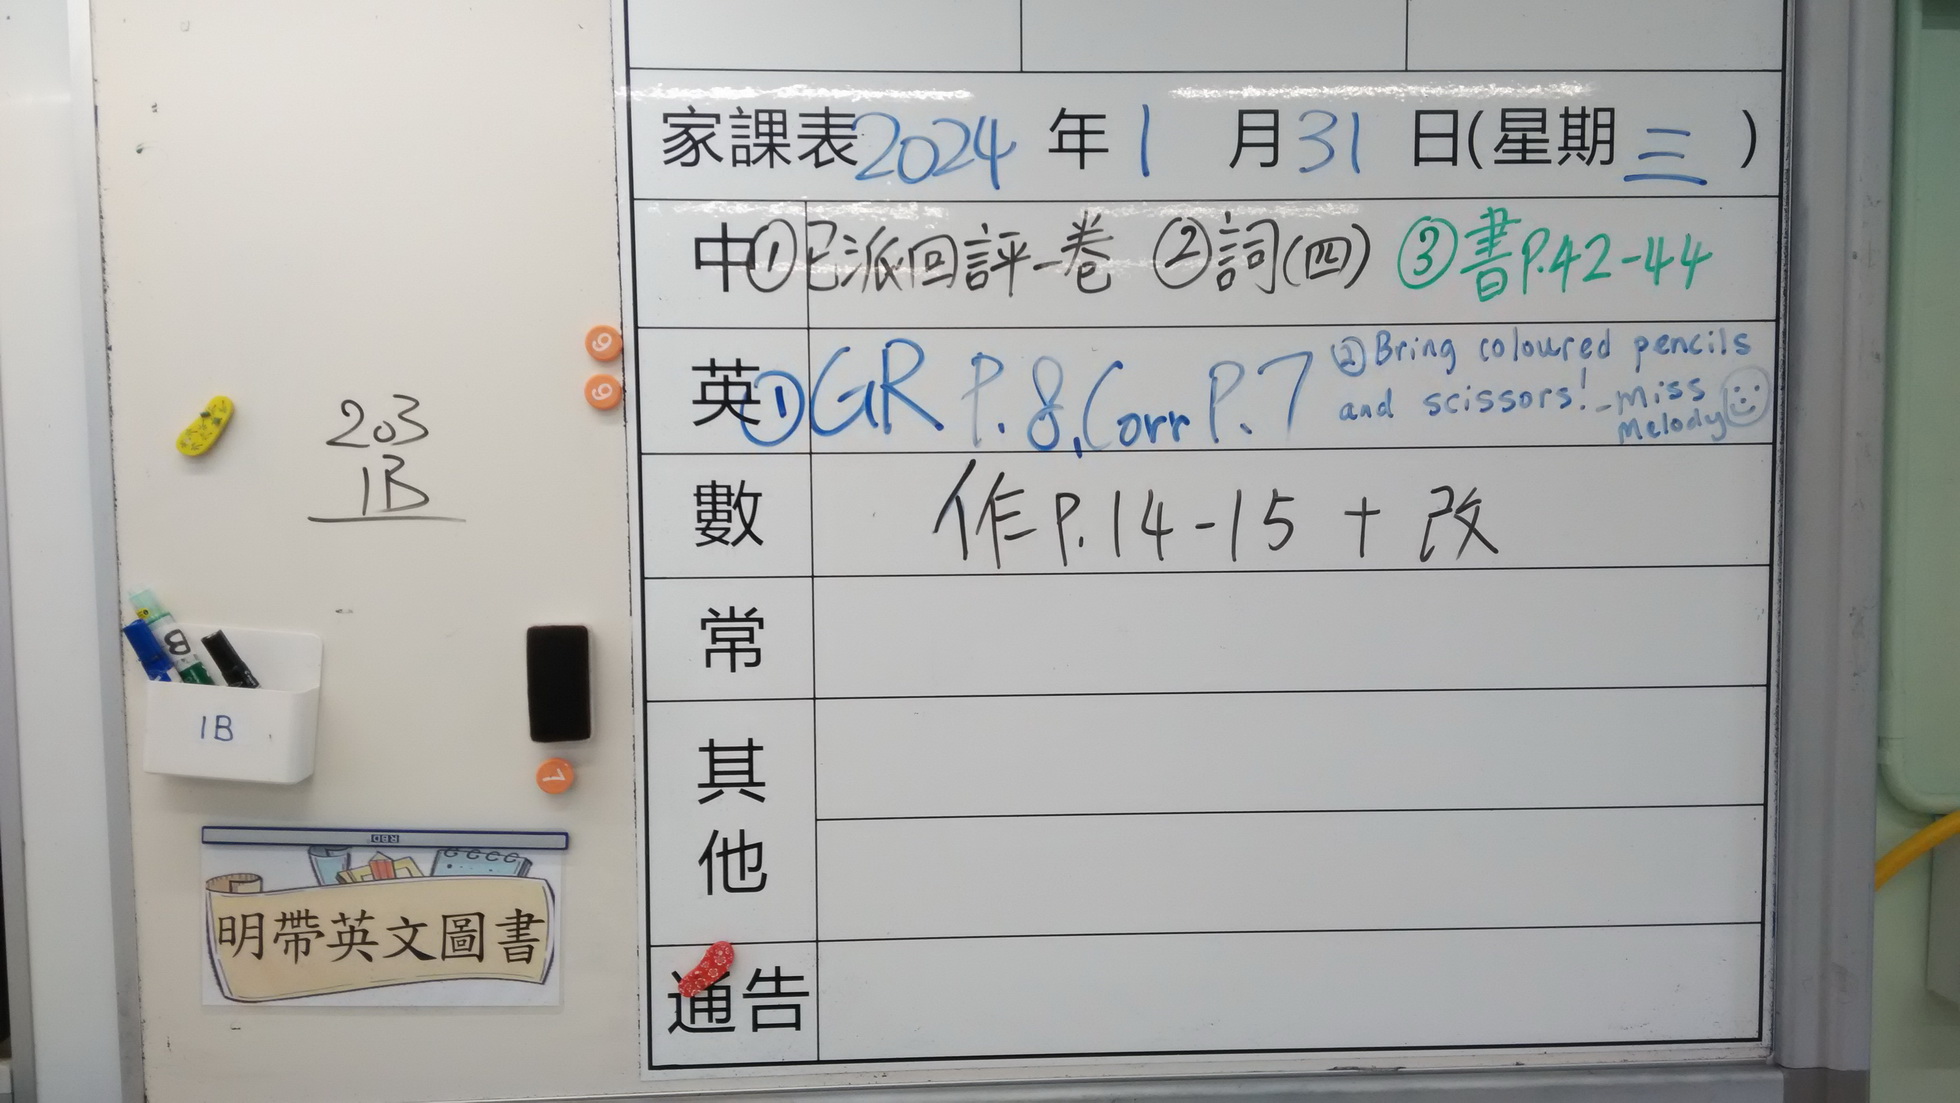 家課表2024年1月31日(星期三)
中①已派回評一卷 ②詞(四) ③書P.42-44
英①GR P.8,Corr P.7 ②Bring coloured pencils
and scissors! -Miss
Melody
數 作P.14-15 + 改
常
其
他
通告
203
1B
B
1B
6
6
7
明帶英文圖書